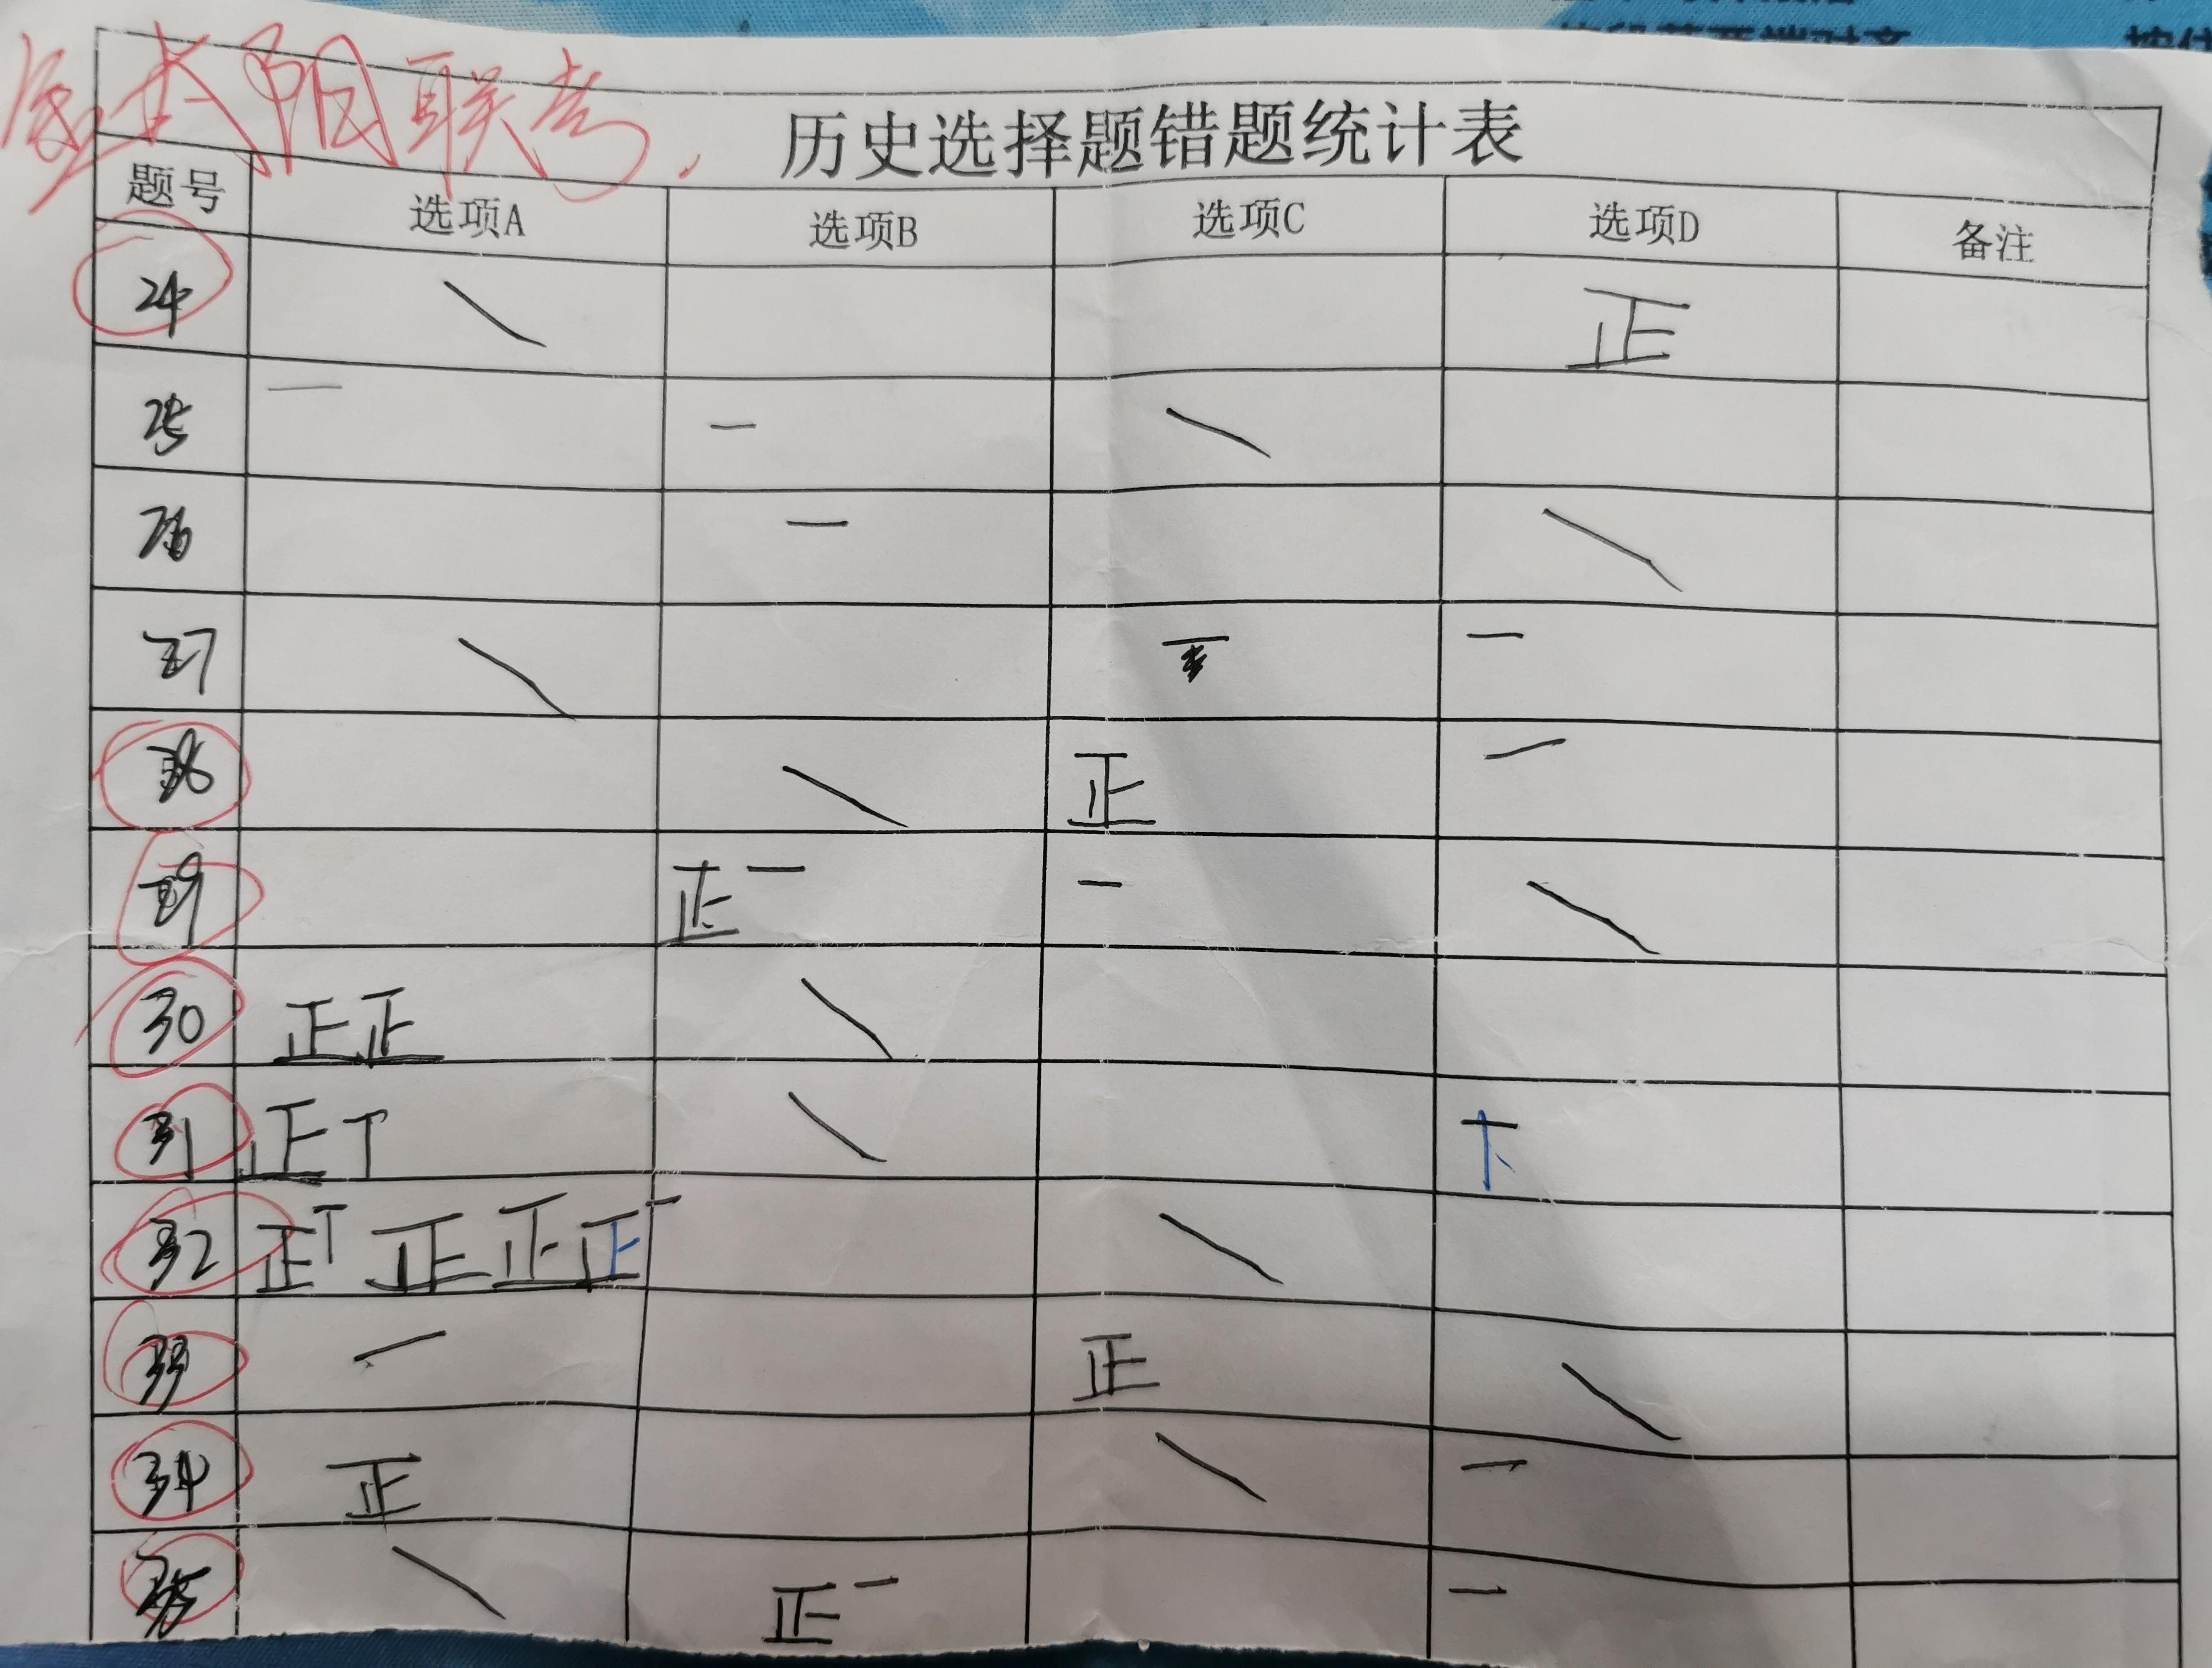 武阳联考.
历史选择题错题统计表
题号 选项A 选项B 选项C 选项D 备注
24 正
25 一 一
26 一
27 一 一
28 正 一
29 正一 一
30 正正
31 正丅 下
32 正丅正正正一
33 一 正
34 正 一
35 正一 一